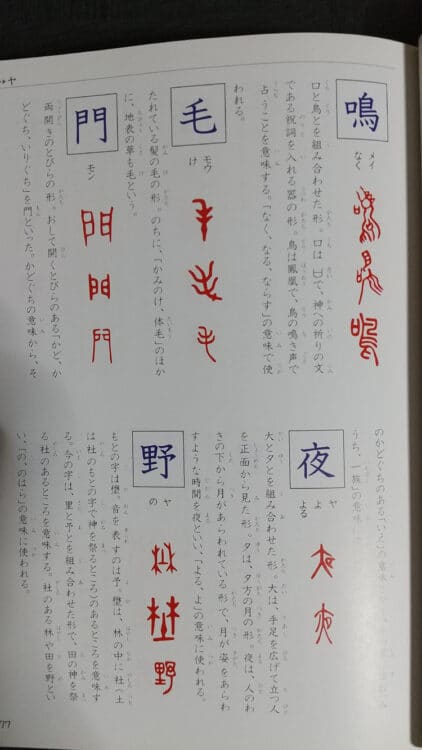 ヤ
鳴
メイ
なく
口と鳥とを組み合わせた形。口は𠙵で、神への祈りの文
である祝詞を入れる器の形。鳥は鳳凰で、鳥の鳴き声で
占うことを意味する。「なく、なる、ならす」の意味で使
われる。
毛
モウ
け
たれている髪の毛の形。のちに、「かみのけ、体毛」のほか
に、地表の草も毛という。
門
モン
両開きのとびらの形。おして開くとびらのある「かど、か
どぐち、いりぐち」を門といった。かどぐちの意味から、そ
のかどぐちのある「いえ」の意味
うち、一族の意味
夜
ヤ
よ
よる
大と夕とを組み合わせた形。大は、手足を広げて立つ人
を正面から見た形。夕は、夕方の月の形。夜は、人のわ
きの下から月があらわれている形で、月が姿をあらわ
すような時間を夜といい、「よる、よ」の意味に使われる。
野
ヤ
の
もとの字は壄。音を表すのは予。壄は、林の中に社（土
は社のもとの字で神を祭るところ）のあるところを意味す
る。今の字は、里と予とを組み合わせた形で、田の神を祭
る社のあるところを意味する。社のある林や田を野とい
い、「の、のはら」の意味に使われる。
77